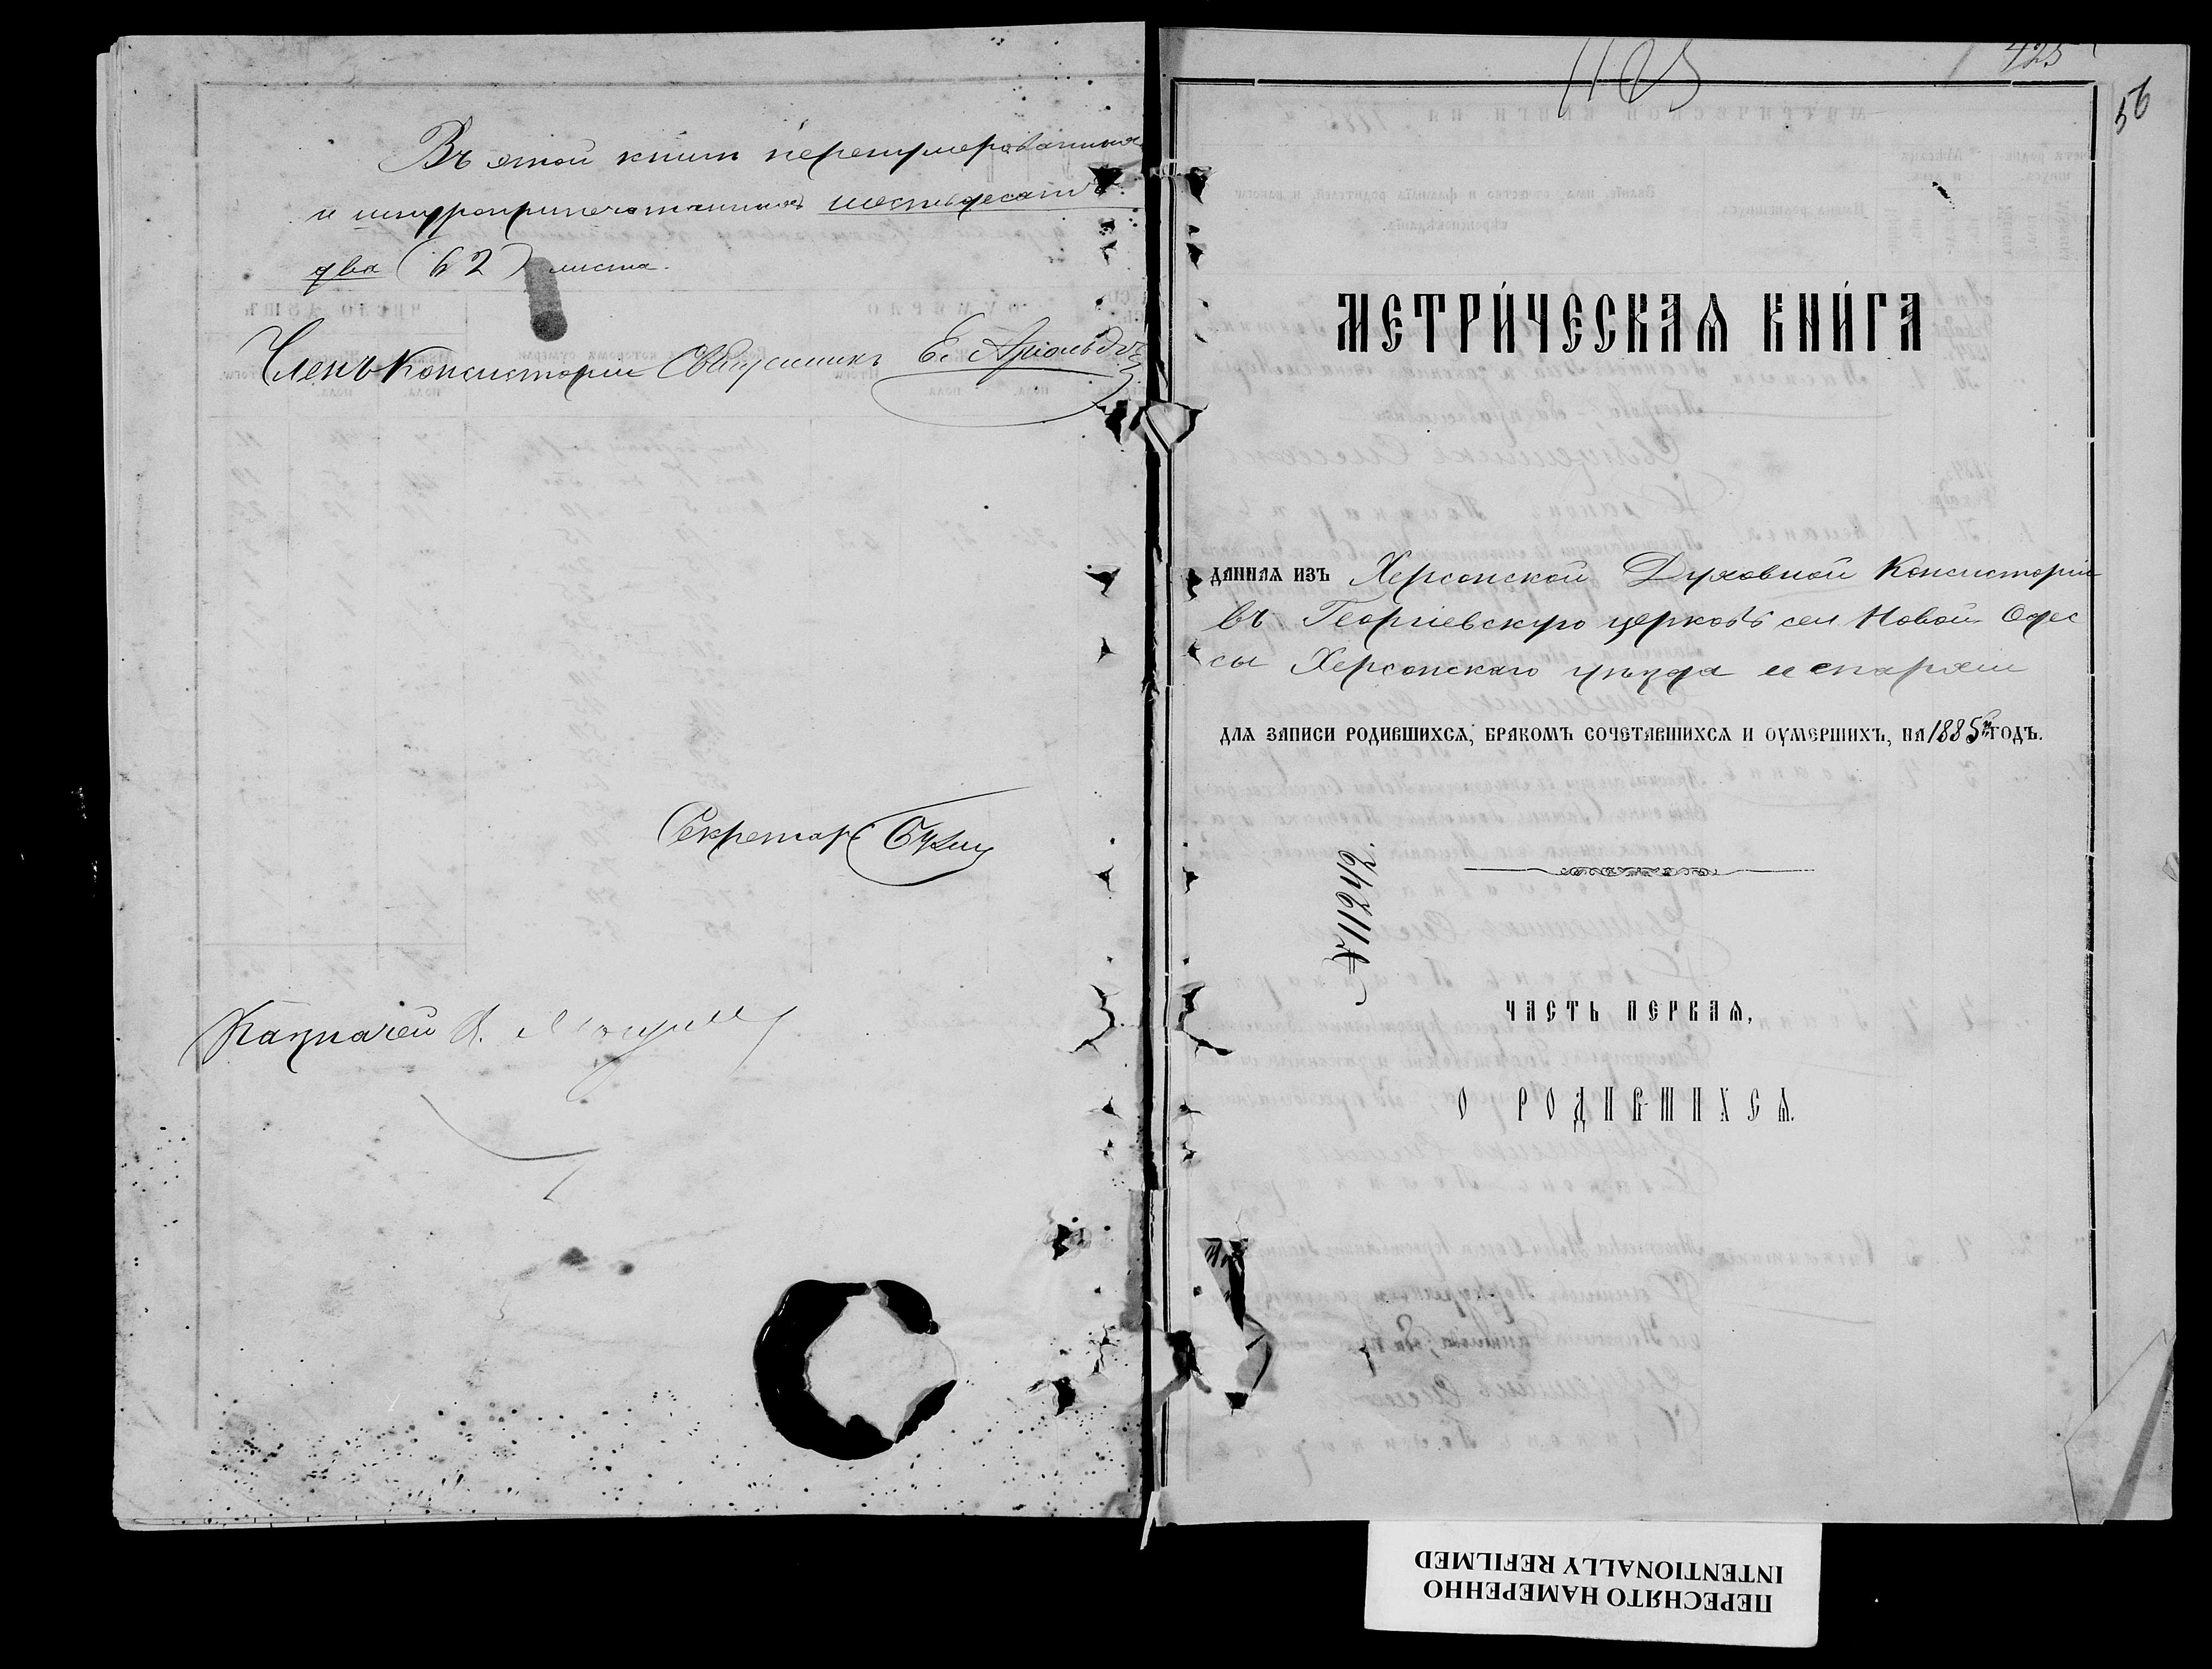 Въ этой книгѣ перенумерованныхъ
и шнуроприпечатанныхъ шестьдесятъ
два (62) листа.
Членъ Консисторіи Священникъ Е.
Секретарь
Казначей
1105
425
56
МЕТРИ́ЧЕСКАѦ КНИ́ГА
ДАННАѦ ИЗЪ Херсонской Духовной Консисторіи
въ Георгіевскую церковь сел. Новой Одес
сы Херсонскаго уѣзда и епархіи
ДЛѦ ЗАПИСИ РОДИВШИХСѦ, БРАКОМЪ СОЧЕТАВШИХСѦ И ОУМЕРШИХЪ, НА 1885й ГОДЪ.
№ 11242.
ЧАСТЬ ПЕРВАѦ,
О РОДИВШИХСѦ.
ПЕРЕСНЯТО НАМЕРЕННО
INTENTIONALLY REFILMED